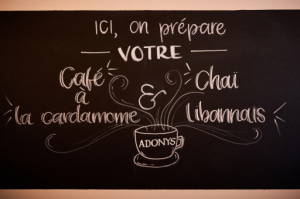 ICI, on prépare
VOTRE
Café & Chai
à
la cardamome Libannais
ADONYS